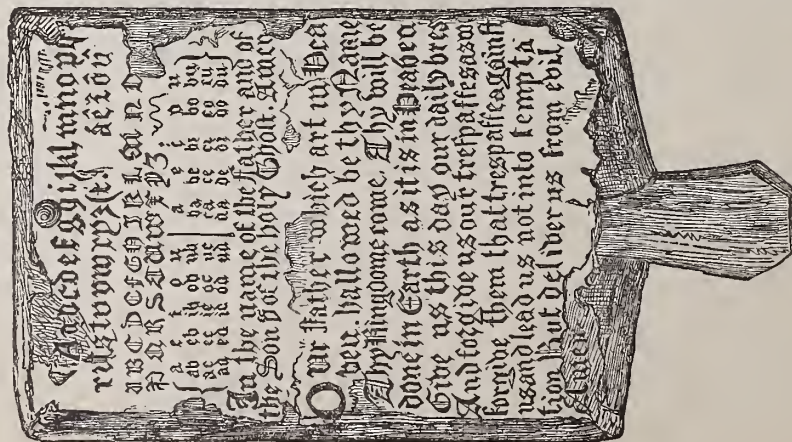 Aabcdefghijklmnopq
rſstvuwxyz&c:
ABCDEFGHIKLMNO
PQRSTUWXYZ
a e i o u
ab eb ib ob ub
ac ec ic oc uc
ad ed id od ud
a e i o u
ba be bi bo bu
ca ce ci co cu
da de di do du
In the name of the Father and of
the Son & of the holy Ghoſt. Amen
Our Father which art in Hea
ven, hallowed be thy Name
Thy Kingdome come, Thy will be
done in Earth as it is in Heaven.
Give us this day our daily bred
And forgive us our treſpaſſes as we
forgive them that treſpaſſe againſt
us and lead us not into tempta
tion But deliver us from evil
Amen